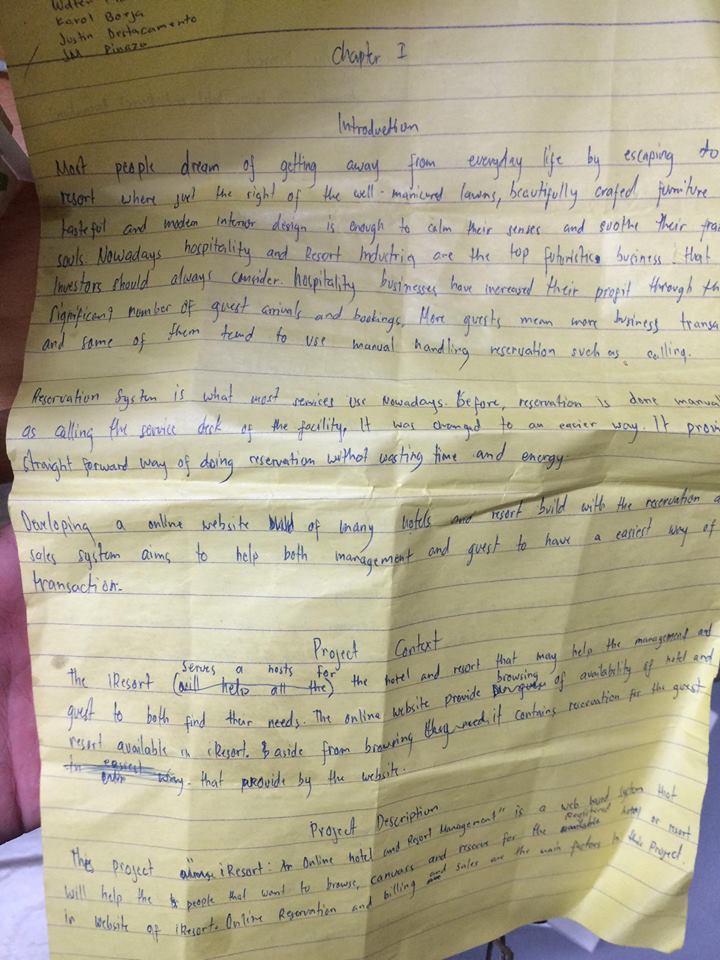 Karol Borja
Justin Destacamento
JM Pinazo
Chapter I
Introduction
Most people dream of getting away from everyday life by escaping to
resort where just the right of the well-manicured lawns, beautifully crafed furniture
tasteful and modern interior design is enough to calm their senses and soothe their
souls. Nowadays hospitality and Resort Industria are the top futuristic business that
Investors should always consider. hospitality businesses have increased their profit through
significant number of guest arrivals and bookings, More guests mean more business
and some of them tend to use manual handling reservation such as calling.
Reservation System is what most services use Nowadays. Before, reservation is done
as calling the service desk of the facility, It was changed to an easier way. It
straight forward way of doing reservation without wasting time and energy.
Developing a online website of many hotels and resort build with the reservation
sales system aims to help both management and guest to have a easiest way of
transaction.
Project Context
serves a hosts for
the iResort (will help all the) the hotel and resort that may help the management and
guest to both find their needs. The online website provide browsing of availability of hotel and
resort available in iResort. aside from browning they need, it contains reservation for the guest
easiest way. that provide by the website.
Project Description
This project iResort: An Online hotel and Resort Management" is a web based system that
will help the people that want to browse, canvass and reserve for the Registered hotel or resort
in website of iResort. Online Reservation and billing and sales are the main factors in this Project.